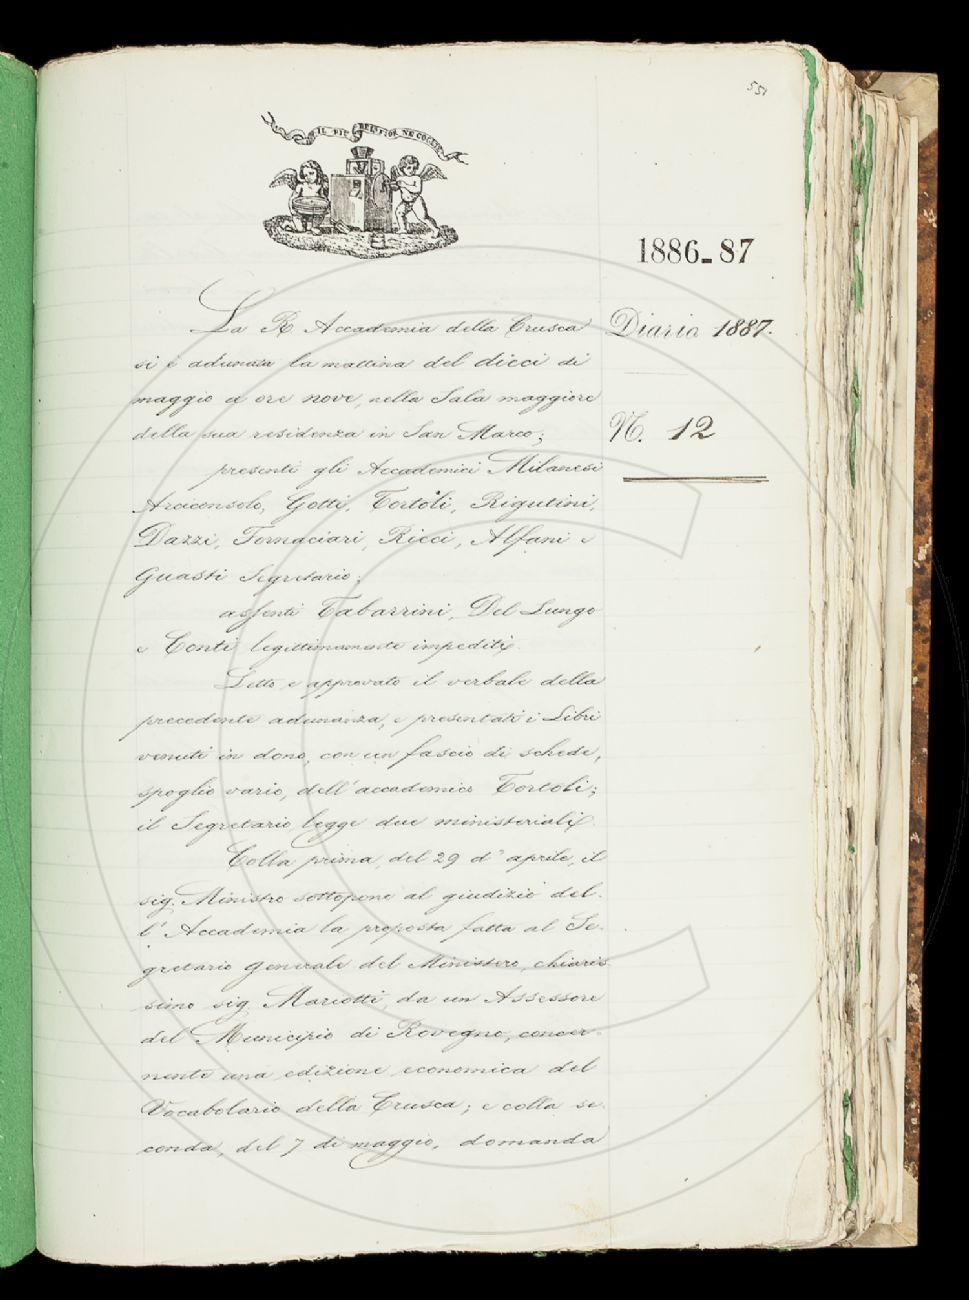 551
IL PIÙ BEL FIOR NE COGLIE
1886-87
Diario 1887.
N. 12
La R. Accademia della Crusca
si è adunata la mattina del dieci di
maggio a ore nove, nella Sala maggiore
della sua residenza in San Marco;
presenti gli Accademici Milanesi
Arciconsolo, Gotti, Tortoli, Rigutini,
Dazzi, Fornaciari, Ricci, Alfani e
Guasti Segretario;
assenti Tabarrini, Del Lungo
e Conti legittimamente impediti.
Letto e approvato il verbale della
precedente adunanza, e presentati i Libri
venuti in dono, con un fascio di schede,
spoglio vario, dell'accademico Tortoli;
il Segretario legge due ministeriali.
Colla prima, del 29 d' aprile, il
sig. Ministro sottopone al giudizio del-
l' Accademia la proposta fatta al Se-
gretario generale del Ministero, chiaris
simo sig. Mariotti, da un Assessore
del Municipio di Rovegno, concer-
nente una edizione economica del
Vocabolario della Crusca; e colla se-
conda, del 7 di maggio, domanda